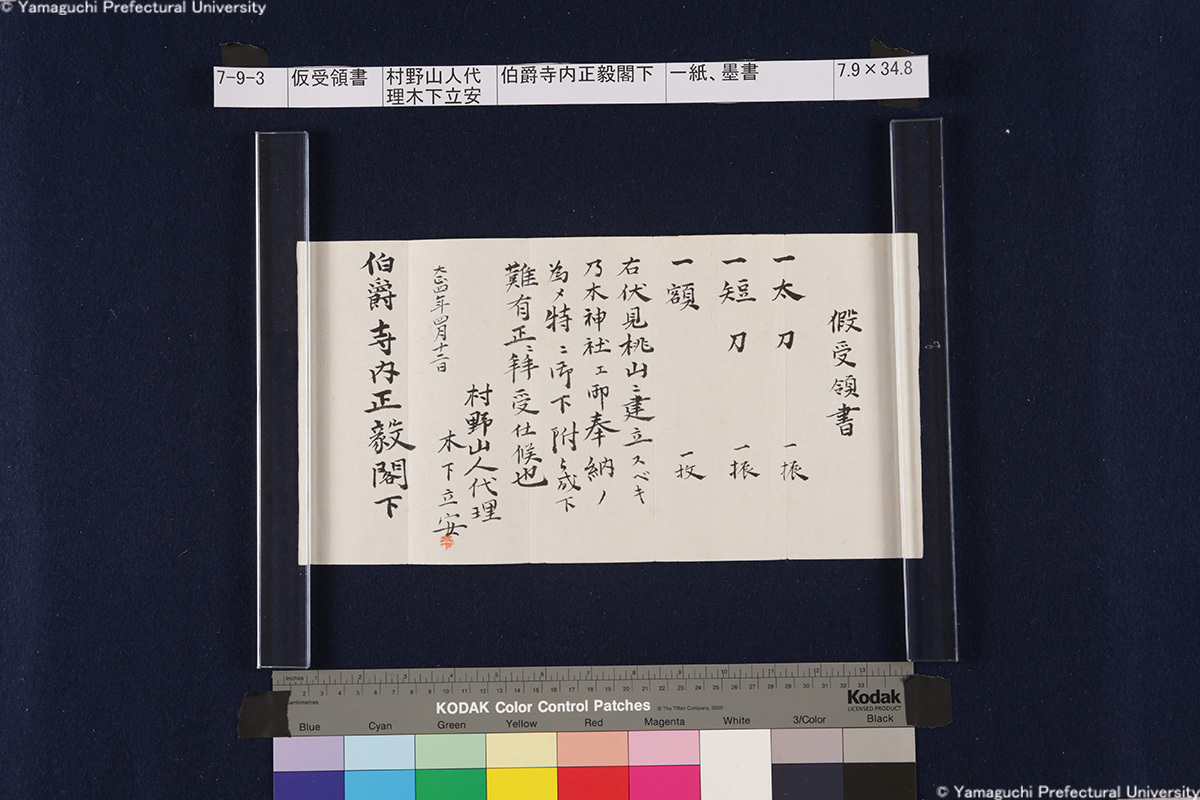 © Yamaguchi Prefectural University
7-9-3
仮受領書
村野山人代
理木下立安
伯爵寺内正毅閣下
一紙、墨書
7.9×34.8
假受領書
一太刀 一振
一短刀 一振
一額 一枚
右伏見桃山ニ建立スベキ
乃木神社エ御奉納ノ
為メ特ニ御下附被成下
難有正ニ拝受仕候也
大正四年四月十二日
村野山人代理
木下立安
伯爵寺内正毅閣下
Inches 1 2 3 4 5 6 7 8 9 10 11 12 13
Centimetres 2 3 4 5 6 7 8 9 10 11 12 13 14 15 16 17 18 19 20 21 22 23 24 25 26 27 28 29 30 31 32 33
KODAK Color Control Patches
© The Tiffen Company, 2000
Kodak
LICENSED PRODUCT
Blue Cyan Green Yellow Red Magenta White 3/Color Black
© Yamaguchi Prefectural University